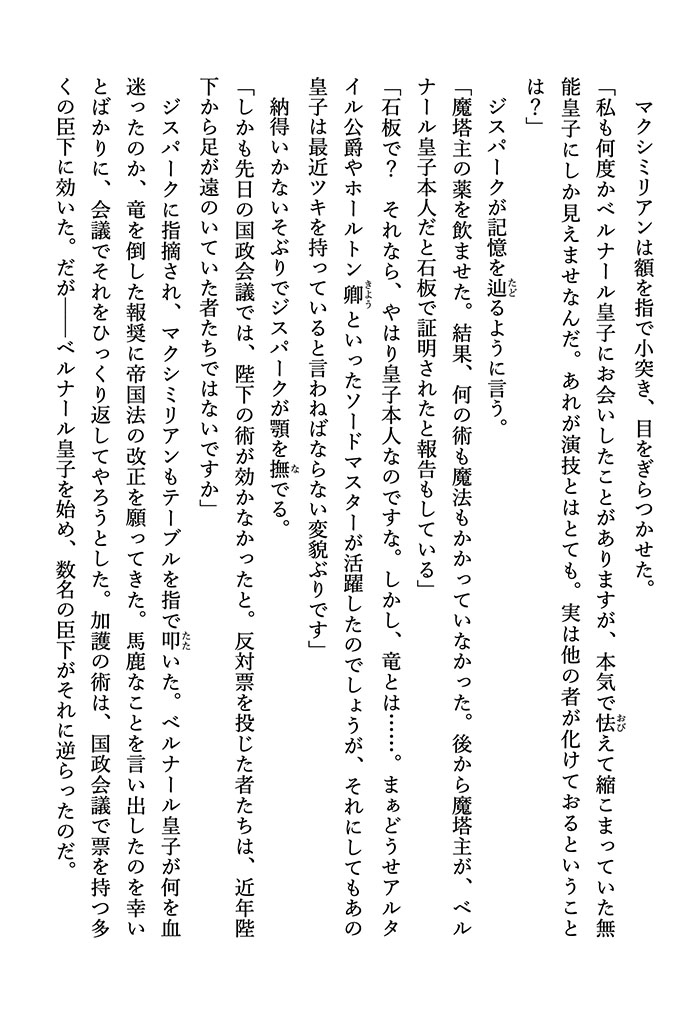 マクシミリアンは額を指で小突き、目をぎらつかせた。
「私も何度かベルナール皇子にお会いしたことがありますが、本気で怯えて縮こまっていた無
能皇子にしか見えませなんだ。あれが演技とはとても。実は他の者が化けておるということ
は？」
ジスパークが記憶を辿るように言う。
「魔塔主の薬を飲ませた。結果、何の術も魔法もかかっていなかった。後から魔塔主が、ベル
ナール皇子本人だと石板で証明されたと報告もしている」
「石板で？　それなら、やはり皇子本人なのですな。しかし、竜とは……。まぁどうせアルタ
イル公爵やホールトン卿といったソードマスターが活躍したのでしょうが、それにしてもあの
皇子は最近ツキを持っていると言わねばならない変貌ぶりです」
納得いかないそぶりでジスパークが顎を撫でる。
「しかも先日の国政会議では、陛下の術が効かなかったと。反対票を投じた者たちは、近年陛
下から足が遠のいていた者たちではないですか」
ジスパークに指摘され、マクシミリアンもテーブルを指で叩いた。ベルナール皇子が何を血
迷ったのか、竜を倒した報奨に帝国法の改正を願ってきた。馬鹿なことを言い出したのを幸い
とばかりに、会議でそれをひっくり返してやろうとした。加護の術は、国政会議で票を持つ多
くの臣下に効いた。だが――ベルナール皇子を始め、数名の臣下がそれに逆らったのだ。